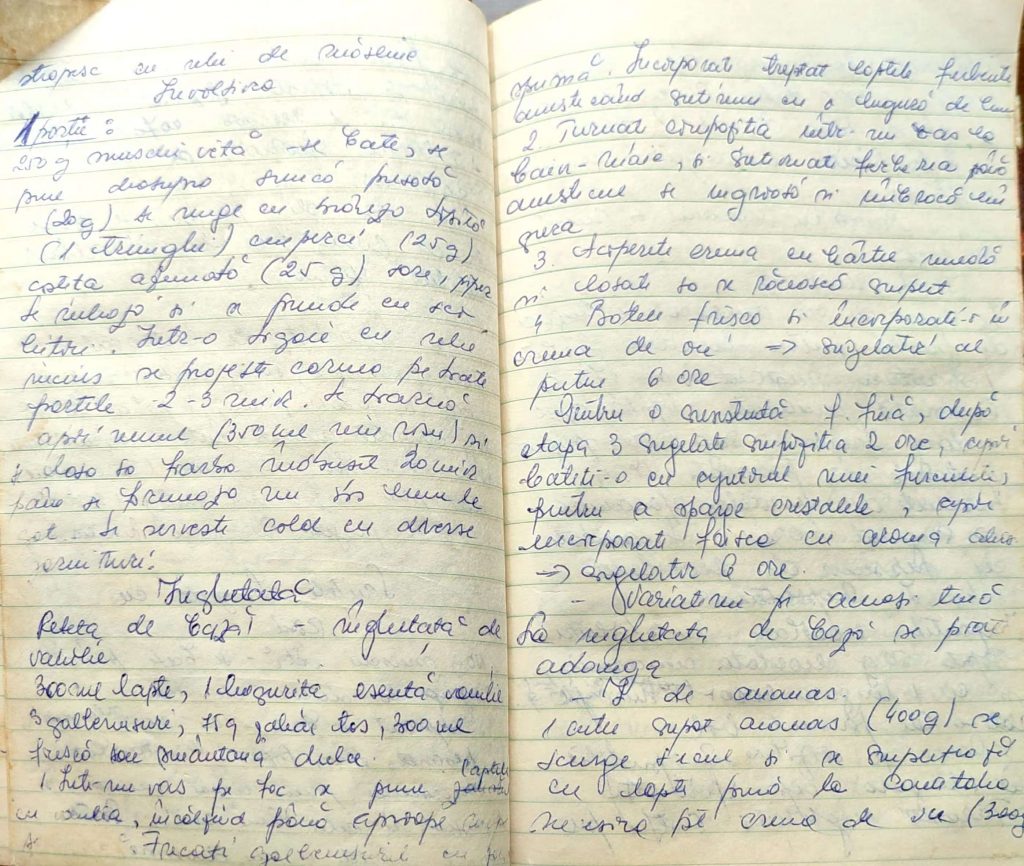 stropesc cu ulei de
Involsivo
1 portie :
250 g muschi vită - se bate, se
pune deasupra suncă presată
(20g) se unge cu
(1 lingura) ciuperci (25g)
afumată (25 g) sare, piper
se ruleaza si se prinde cu
. Intr-o tigaie cu ulei
incins se prajeste carnea pe toate
partile - 2-3 min. Se toarnă
apoi (350 ml vin rosu) si
se lasa să fiarbă înăbusit 30 min
până se formeaza un sos
Se serveste cald cu diverse
garnituri.
Inghetată
Retetă de bază - înghetată de
vanilie
300 ml lapte, 1 lingurita esentă vanilie
3 gălbenusuri, 75g zahăr tos, 300 ml
friscă sau smântână dulce.
1. Intr-un vas pe foc se pune laptele
cu vanilia, încălzind până aproape
Frecati gălbenusurile cu
spumă. Incorporati treptat laptele fierbinte
amestecând cu o lingură de lemn
2. Turnati compozitia intr-un vas la
bain-marie, si fierberea până
amestecul se îngroasă si îmbracă
3. Acoperiti crema cu hârtie
si lăsati să se răcească complet
4 Bateti frisca si încorporati-o în
crema de ou => congelati cel
putin 6 ore
Pentru o consistentă f. fină, după
etapa 3 congelati compozitia 2 ore, apoi
bateti-o cu ajutorul unei furculite,
pentru a sparge cristalele, apoi
incorporati frisca cu aroma
=> congelator 6 ore.
- Variatiuni pe aceeasi temă
La inghetata de bază se poate
adăuga
I de ananas.
1 cutie compot ananas (400g) se
scurge bine si se
cu lapte până la cantitatea
necesara pt crema de ou (300g